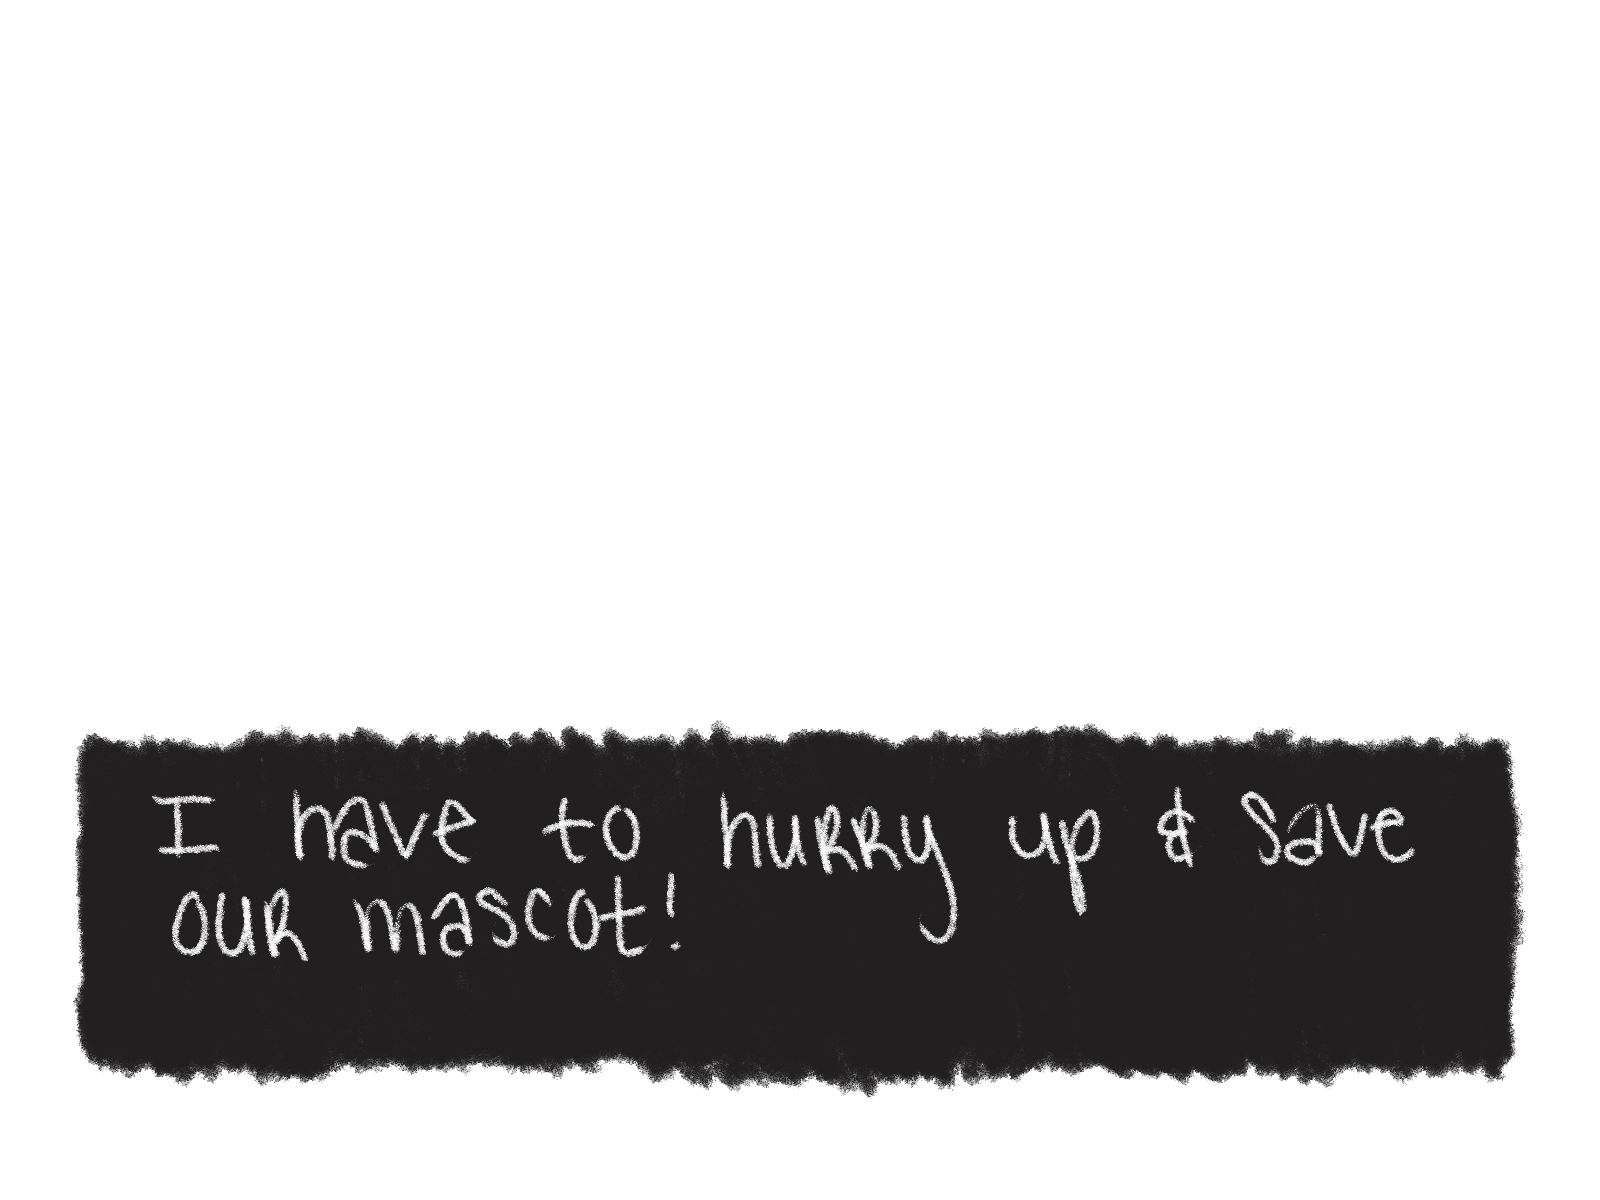 I have to hurry up & save
our mascot!